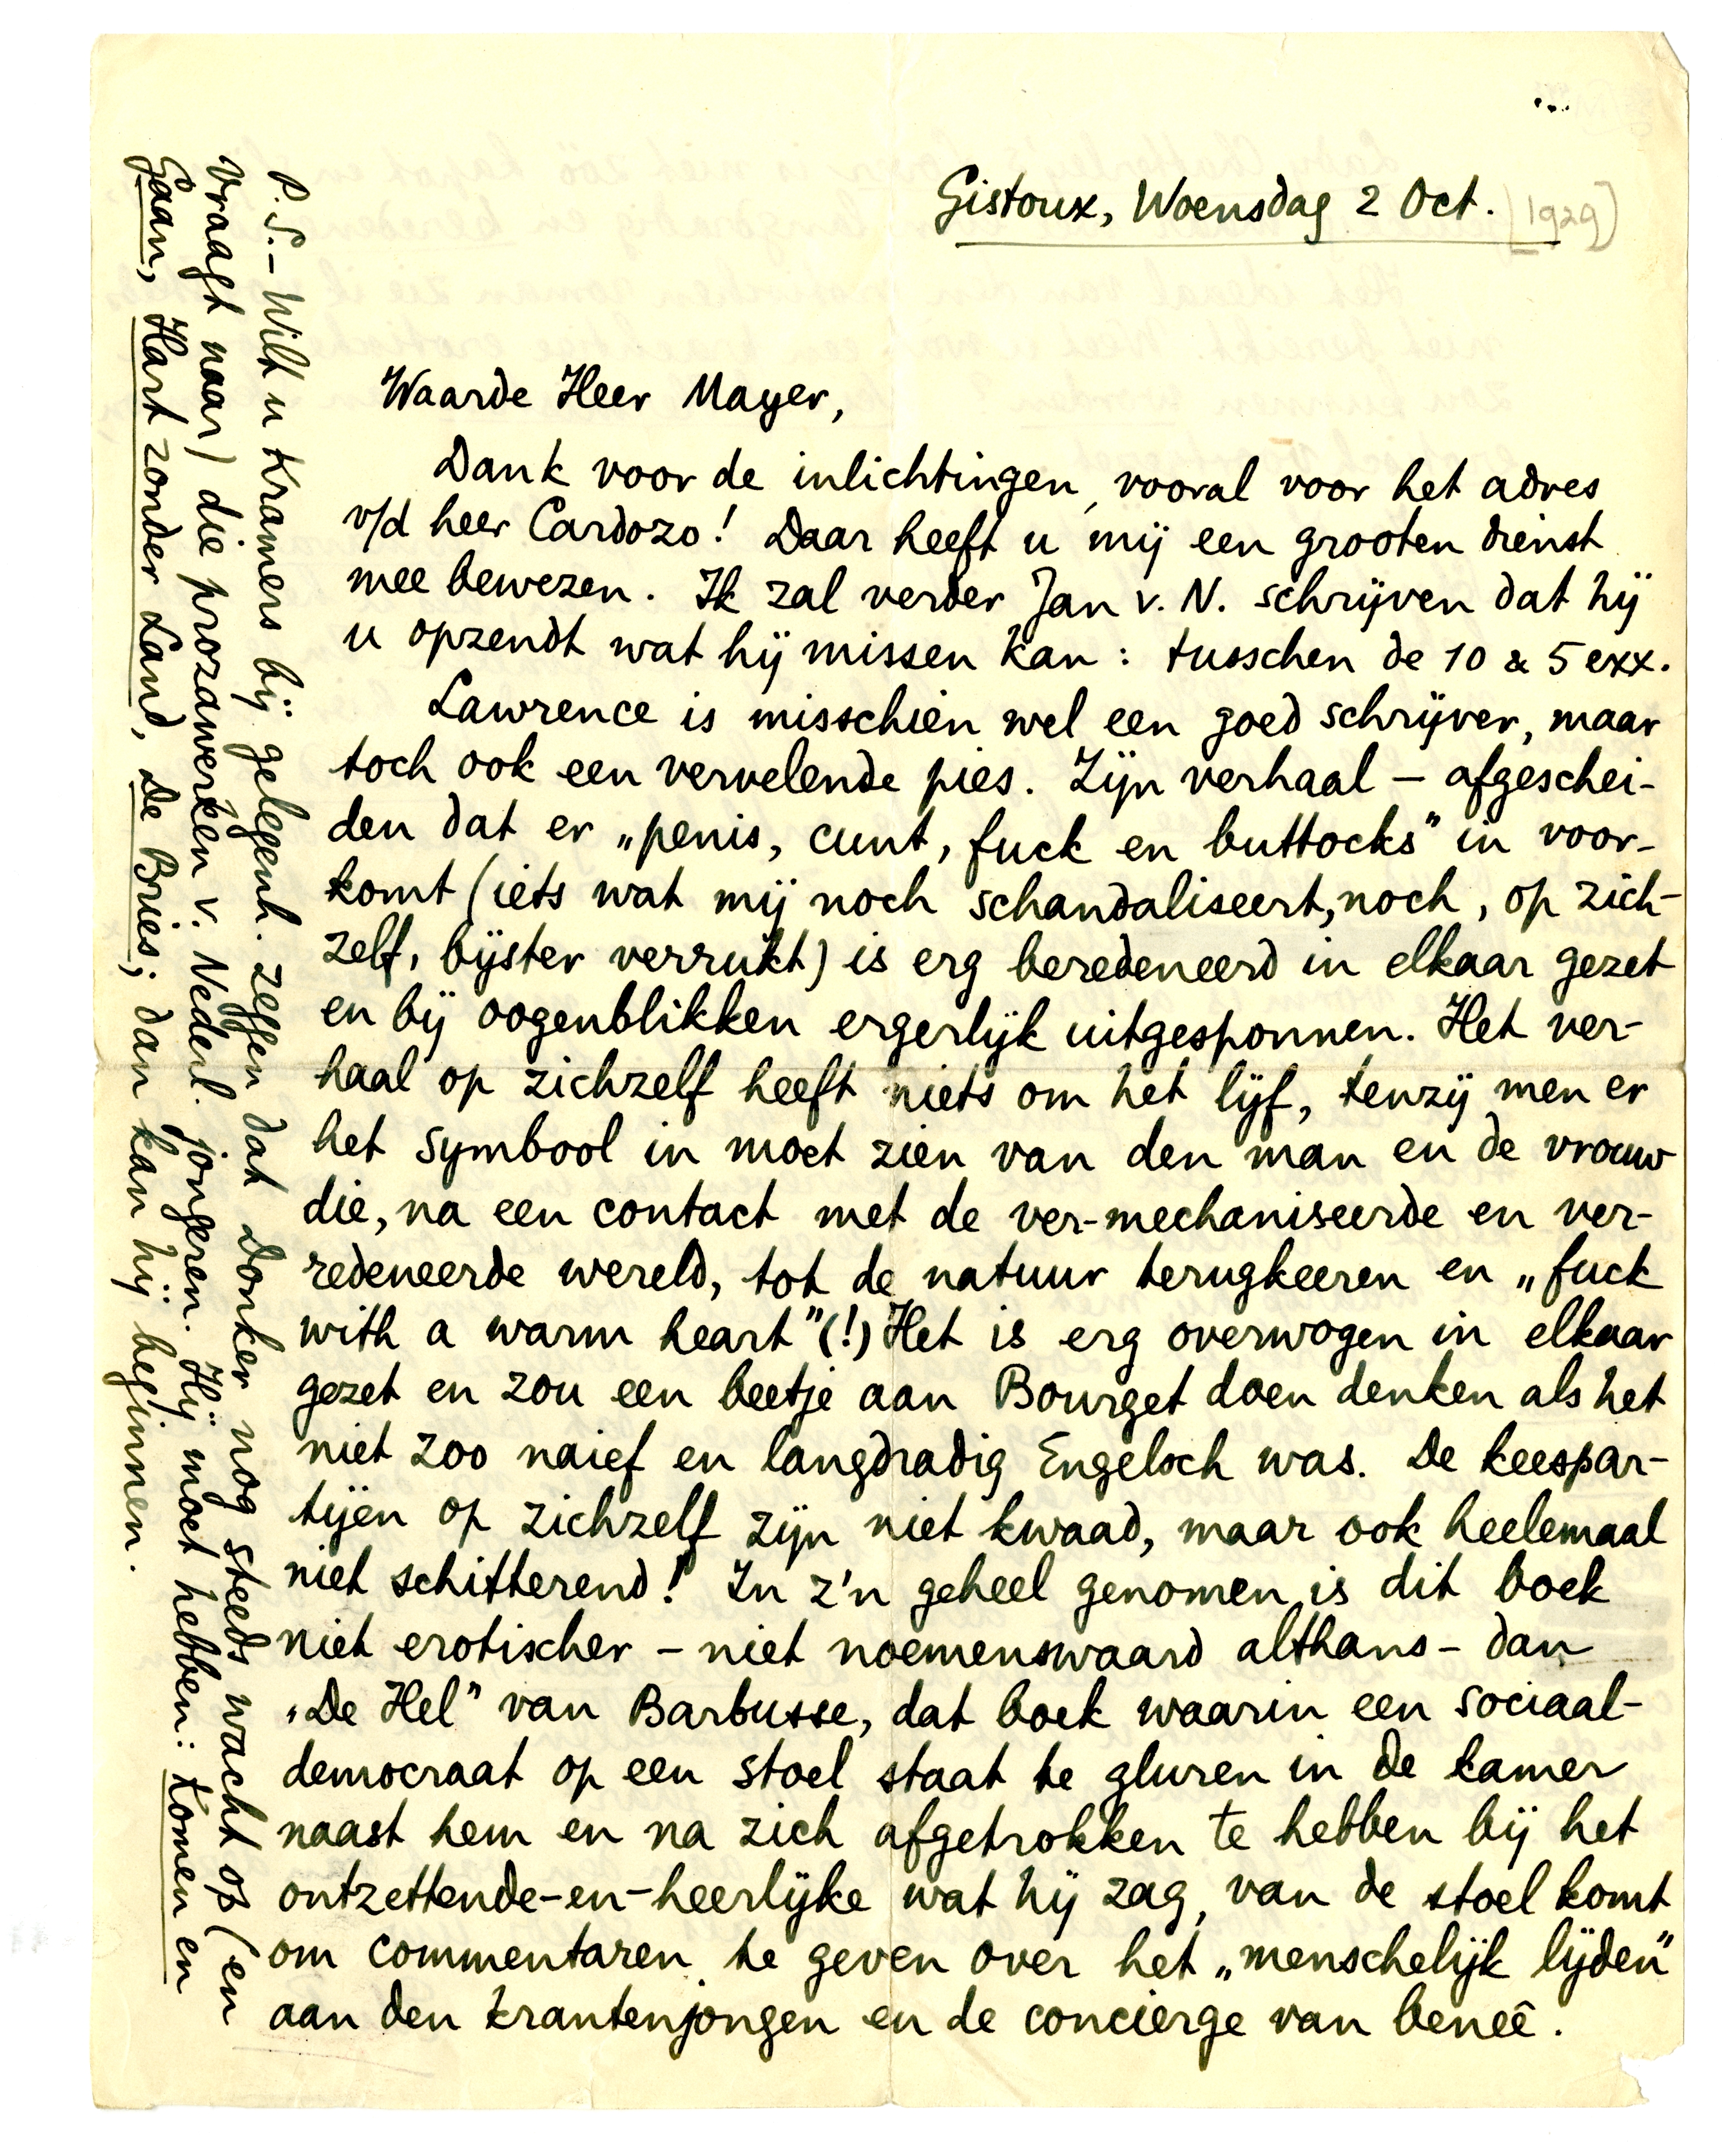 Gistoux, Woensdag 2 Oct. [1929]
Waarde Heer Mayer,
Dank voor de inlichtingen, vooral voor het adres
v/d heer Cardozo! Daar heeft u mij een grooten dienst
mee bewezen. Ik zal verder Jan v. N. schrijven dat hij
u opzendt wat hij missen kan: tusschen de 10 & 5 exx.
Lawrence is misschien wel een goed schrijver, maar
toch ook een vervelende pies. Zijn verhaal – afgeschei-
den dat er „penis, cunt, fuck en buttocks” in voor-
komt (iets wat mij noch schandaliseert, noch, op zich-
zelf, bijster verrukt) is erg beredeneerd in elkaar gezet
en bij oogenblikken ergerlijk uitgesponnen. Het ver-
haal op zichzelf heeft niets om het lijf, tenzij men er
het symbool in moet zien van den man en de vrouw
die, na een contact met de ver-mechaniseerde en ver-
redeneerde wereld, tot de natuur terugkeeren en „fuck
with a warm heart” (!) Het is erg overwogen in elkaar
gezet en zou een beetje aan Bourget doen denken als het
niet zoo naief en langdradig Engelsch was. De keespar-
tijen op zichzelf zijn niet kwaad, maar ook heelemaal
niet schitterend! In z'n geheel genomen is dit boek
niet erotischer – niet noemenswaard althans – dan
„De Hel” van Barbusse, dat boek waarin een sociaal-
democraat op een stoel staat te gluren in de kamer
naast hem en na zich afgetrokken te hebben bij het
ontzettende-en-heerlijke wat hij zag, van de stoel komt
om commentaren te geven over het „menschelijk lijden”
aan den krantenjongen en de concierge van beneê.
P.S. – Wilt u Kramers bij gelegenh. zeggen dat Donker nog steeds wacht op (en
vraagt naar) die prozawerken v. Nederl. jongeren. Hij moet hebben: Komen en
Gaan, Hart zonder Land, De Bries; dan kan hij beginnen.